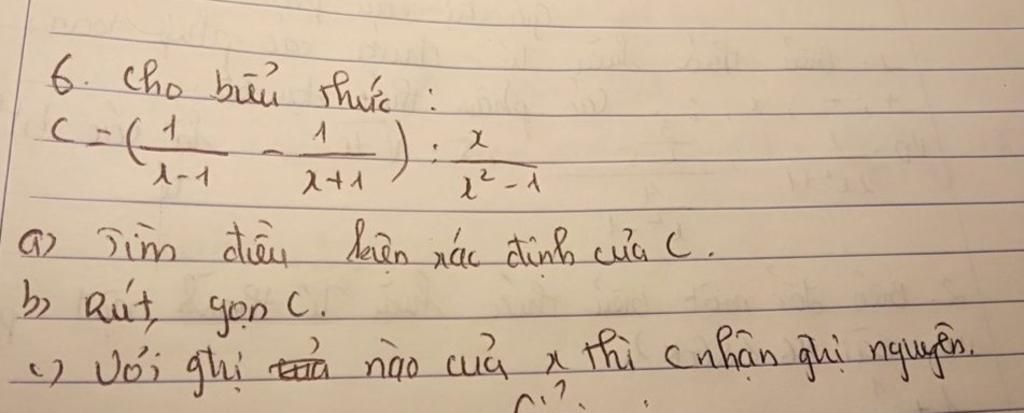 6. Cho biểu thức:
C = (1/(x-1) - 1/(x+1)) : x/(x² - 1)
a) Tìm điều kiện xác định của C.
b) Rút gọn C.
c) Với ghị nào của x thì C nhận ghị nguyên.